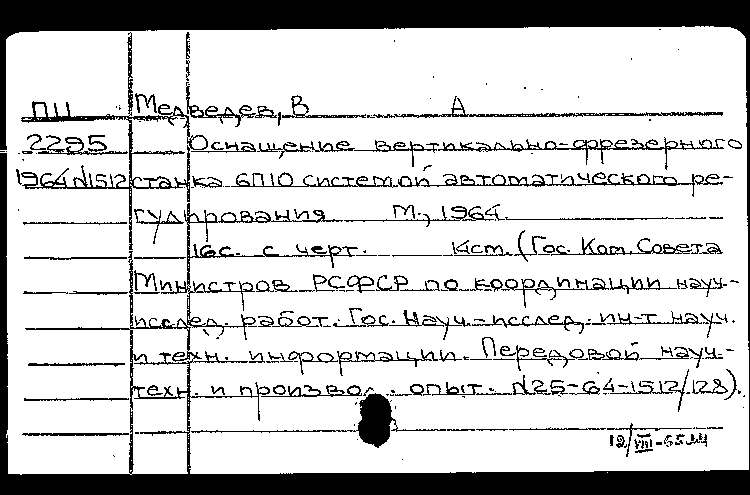 ПН Медведев, В А
2295 Оснащение вертикально-фрезерного
1964 N1512 станка 6П10 системой автоматического ре-
гулирования М., 1964.
16с. с черт. 14см. (Гос. Ком. Совета
Министров РСФСР по координации науч.-
исслед. работ. Гос. Науч.-исслед. ин-т науч.
и техн. информации. Передовой науч.-
техн. и произвол. опыт. N25-64-1512/128).
12/VIII-65